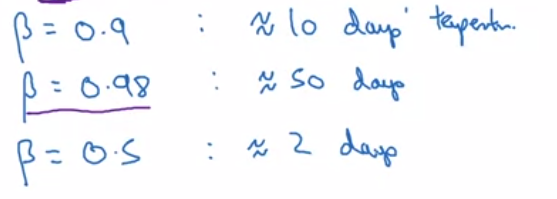 β = 0.9 : ≈ 10 days' temperatr.
β = 0.98 : ≈ 50 days
β = 0.5 : ≈ 2 days